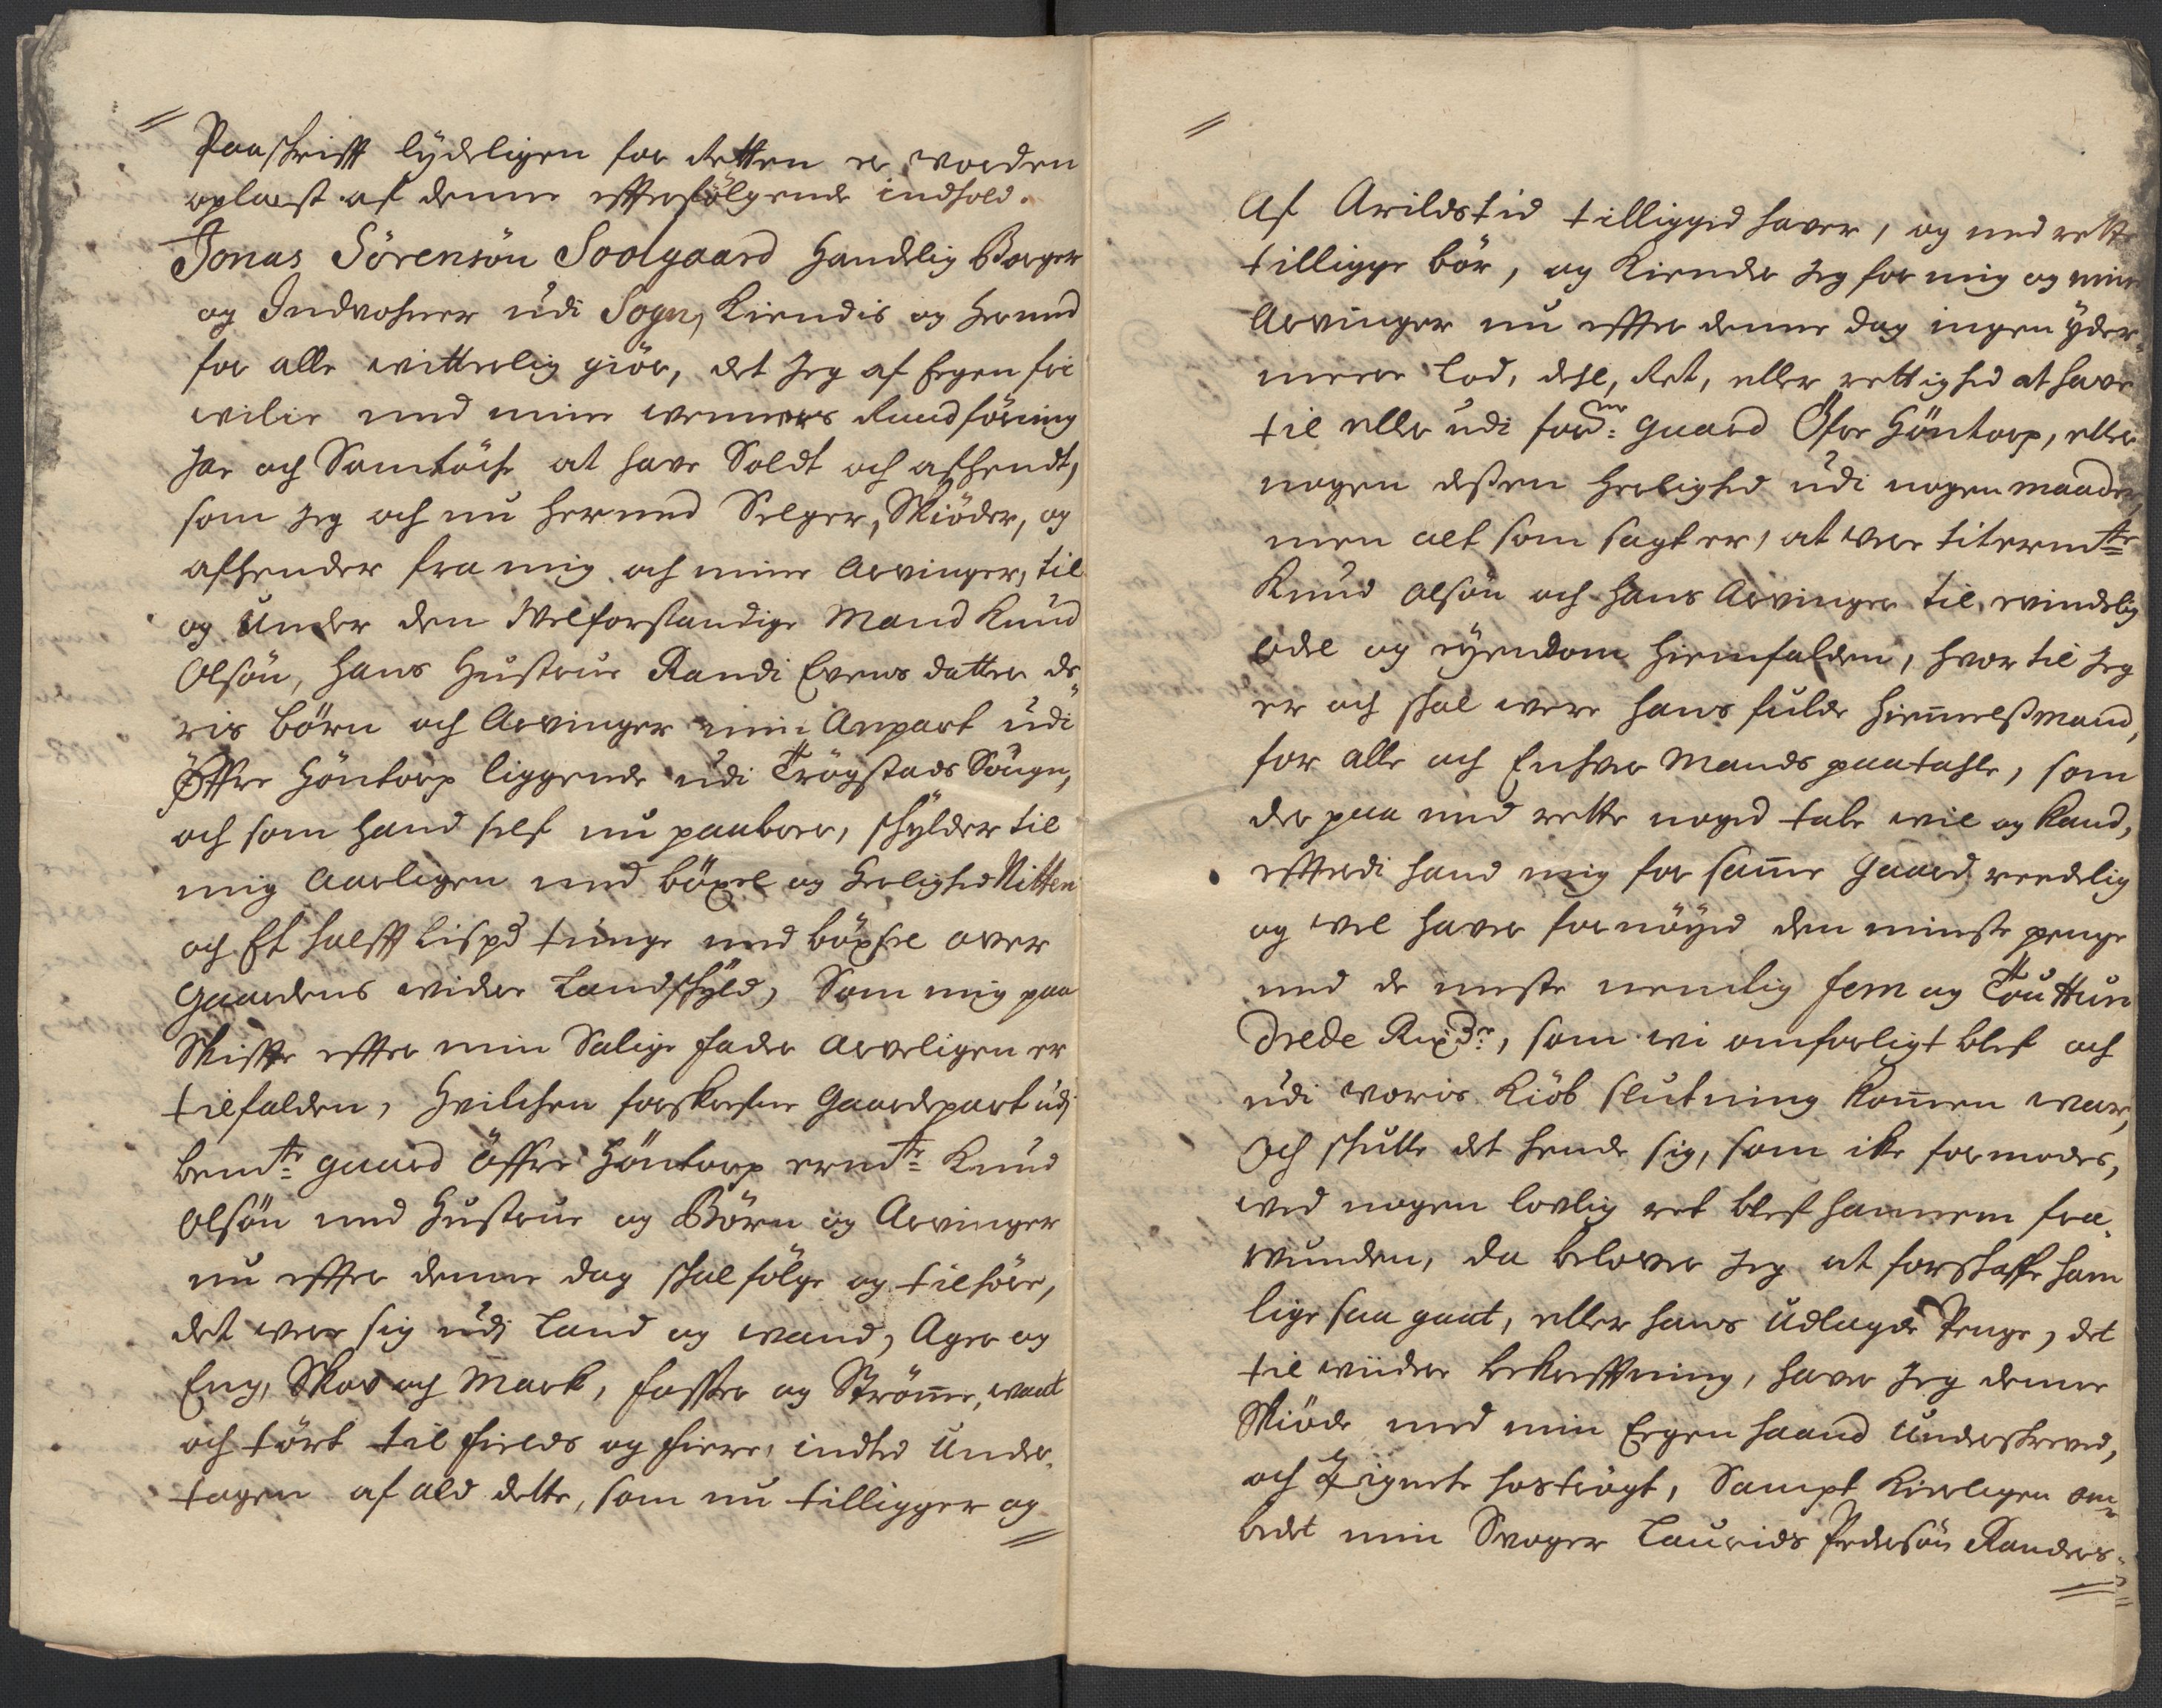 Paaskrifft lydeligen for Retten er worden
oplæst af denne effterfölgende indhold.
Jonas Sörensön Soolgaard Handelig Borger
og Indvohner udi Sogn, Kiendis og hermed
for alle witterlig giör, det Jeg af Eegen fri
wilie med mine wenners Raadföring
Jae och Samtöche at have Soldt och afhendt,
som Jeg och nu hermed Selger, Skiöder, og
afhender fra mig och mine Arvinger, til
og Under den Welforstandige Mand Knud
Olsön, hans Hustrue Randi Evensdatter de¬
ris börn och Arvinger min Anpart udi
Öffre Höntorp liggende udi Trögstads Sougn,
och som hand self nu paaboer, skylder til
mig Aarligen med böxel og Herlighed Nitten
och Et halfft Lispd tunge med böxsel over
Gaardens widere Landskyld, Som mig paa
Skiffte effter min Salige fader Arveligen er
tilfalden, Hvilchen forskrefne Gaardepart udj
bemte gaard Öffre Höntorp ermte Knud
Olsön med Hustrue og Börn og Arvinger
nu effter denne dag skal fölge og tilhöre,
det were sig udj Land og wand, Ager og
Eng, Skov och Mark, fosser og Strömme, waat
och tört til fields og fiere, indted Under¬
tagen af ald dette, som nu tilligger og
Af Arildstid tilligged haver, og med rette
tilligge bör, og Kiender Jeg for mig og mine
Arvinger nu effter denne dag ingen yder¬
meere Lod, deel, Ret, eller rettighed at have
til eller udi forne: gaard Öfre Höntorp, eller
nogen dessen herlighed udi nogen maader,
men alt som sagt er, at were titermte
Knud Olsön och Hans Arvinger til evindelig
odel og eyendom hiemfalden, hvor til Jeg
er och skal were hans fulde Hiemmelssmand,
for alle och Enhver Mands paatahle, som
der paa med rette noged tale wil og kand,
efftterdi hand mig for samme Gaard reedelig
og wel haver fornöyed den minste penge
med de meste nemlig fem og Tou Hun
drede Rixdr:, som wi omforligt blef och
udi woris Kiöb slutning kommen war,
Och skulle det hende sig, som ike formodes,
wed nogen lovlig ret blef hannem fra¬
wunden, da belover Jeg at forskaffe ham
lige saa gaat, eller hans Udlagde Penge, det
til wiidere bekrefftning, haver Jeg denne
Skiöde med min Eegen haand Underskreved,
och Zignete hoströgt, Sampt Kierligen om¬
bedet min Svoger Laurids Pedersön Randers